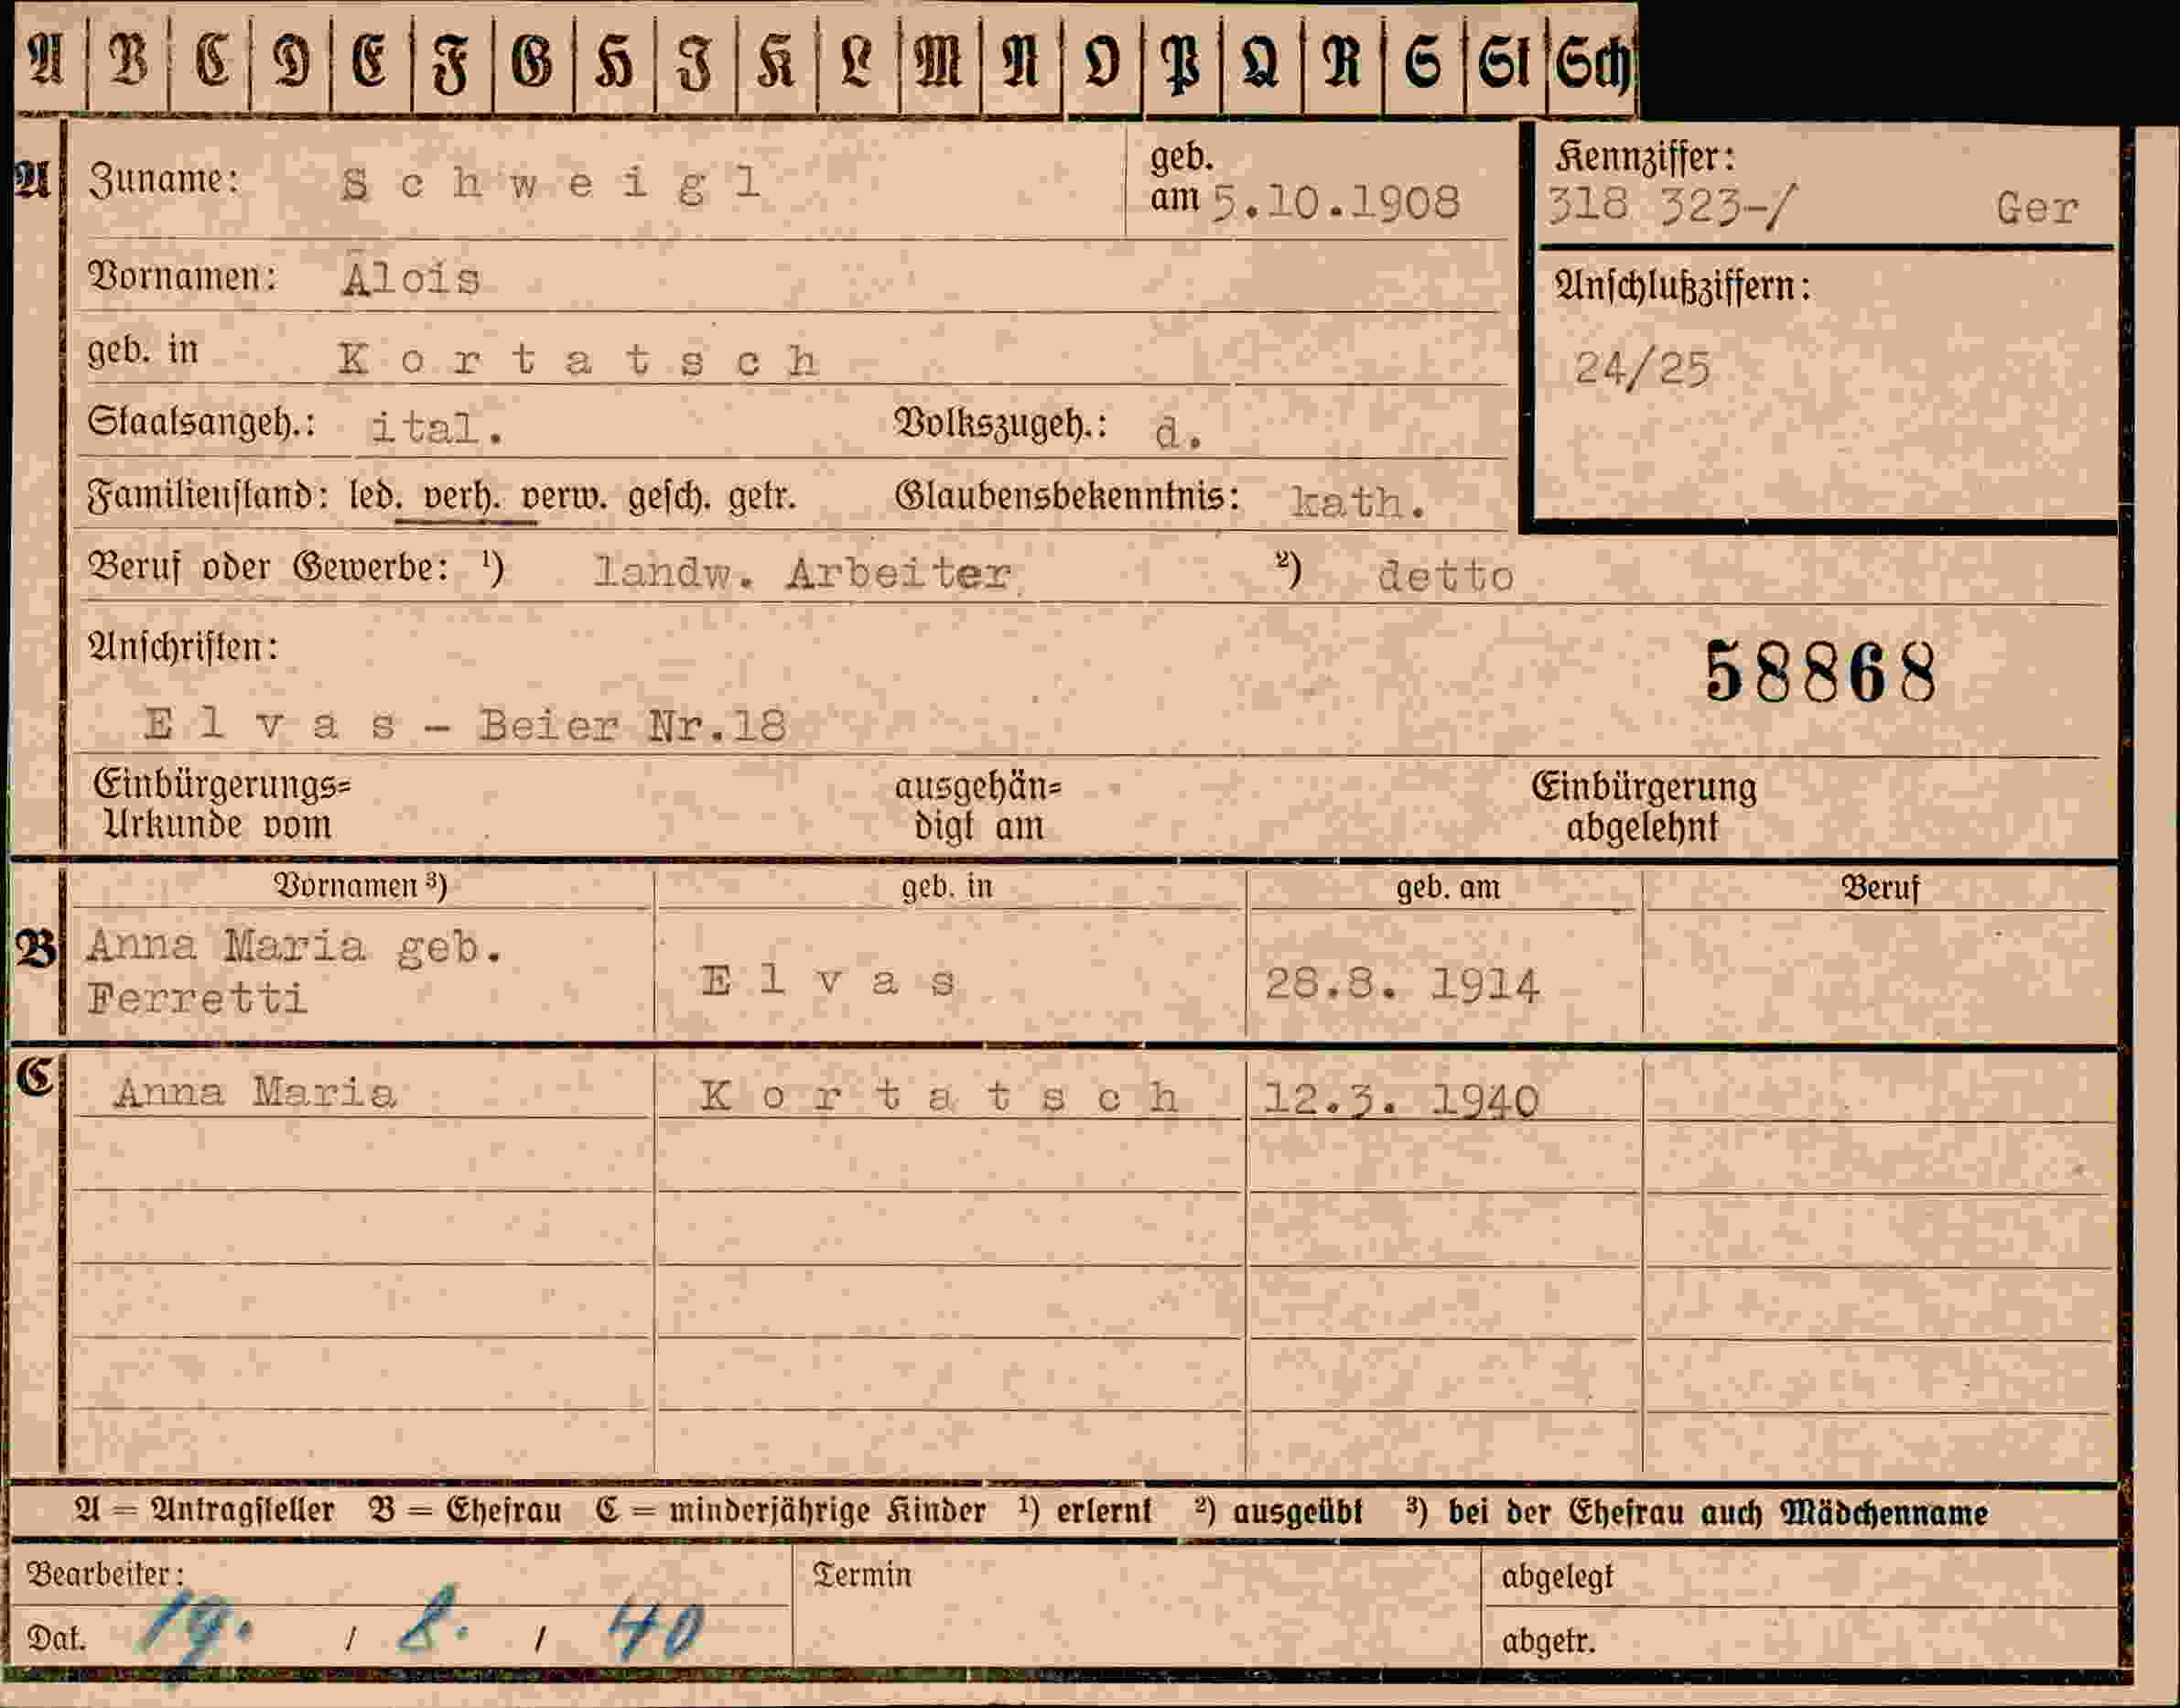 A B C D E F G H I K L M N O P Q R S St Sch
A
Zuname: Schweigl
geb. am 5.10.1908
Kennziffer:
318 323-/ Ger
Vornamen: Alois
Anschlußziffern:
24/25
geb. in Kortatsch
Staatsangeh.: ital. Volkszugeh.: d.
Familienstand: led. verh. verw. gesch. getr. Glaubensbekenntnis: kath.
Beruf oder Gewerbe: ¹) landw. Arbeiter ²) detto
Anschriften:
58868
Elvas - Beier Nr.18
Einbürgerungs= ausgehän= Einbürgerung
Urkunde vom digt am abgelehnt
Vornamen ³) geb. in geb. am Beruf
B
Anna Maria geb.
Ferretti Elvas 28.8. 1914
C
Anna Maria Kortatsch 12.3. 1940
A = Antragsteller B = Ehefrau C = minderjährige Kinder ¹) erlernt ²) ausgeübt ³) bei der Ehefrau auch Mädchenname
Bearbeiter: Termin abgelegt
Dat. 19. / 8. / 40 abgetr.